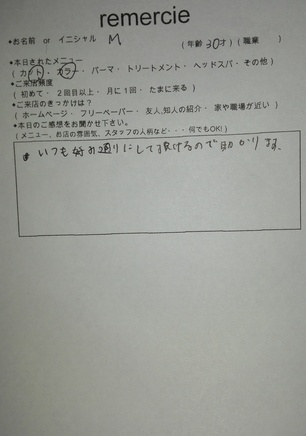 remercie
*お名前 or イニシャル M
(年齢 30才) (職業 )
*本日されたメニュー
( カット・ カラー・ パーマ・ トリートメント・ ヘッドスパ・ その他 )
*ご来店頻度
( 初めて・ 2回目以上・ 月に1回・ たまに来る )
*ご来店のきっかけは?
( ホームページ・ フリーペーパー・ 友人,知人の紹介・ 家や職場が近い )
*本日のご感想をお聞かせ下さい。
(メニュー、お店の雰囲気、スタッフの人柄など・・・何でもOK!)
いつも好み通りにして頂けるので助かります。